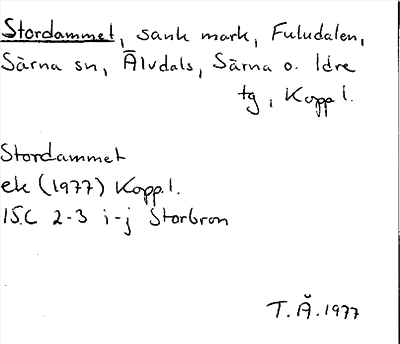 Stordammet, sank mark, Fuludalen,
Särna sn, Älvdals, Särna o. Idre
tg, Kopp l.
Stordammet
ek (1977) Kopp. l.
15C 2-3 i-j Storbron
T. Å. 1977